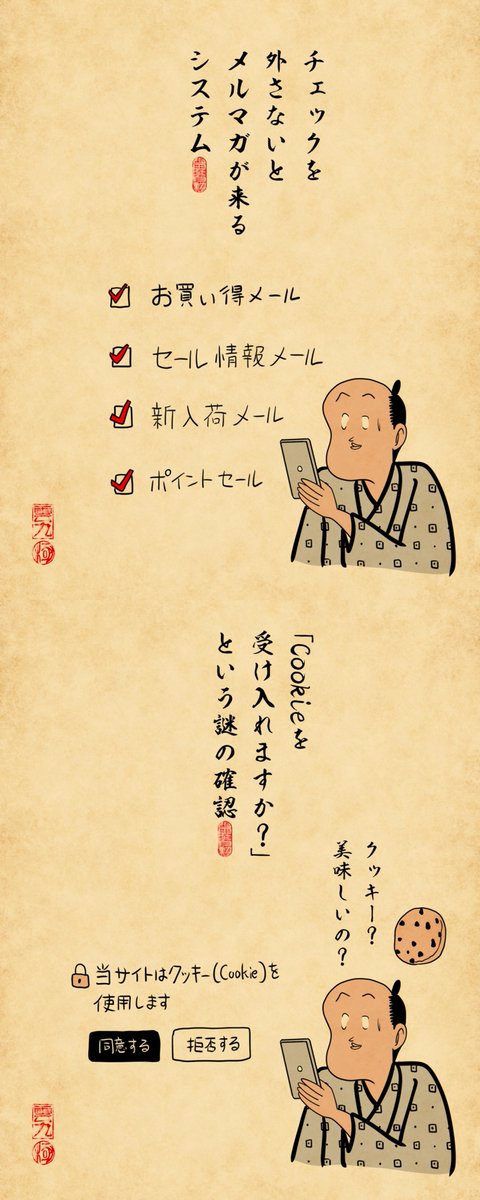 チェックを
外さないと
メルマガが来る
システム
お買い得メール
セール情報メール
新入荷メール
ポイントセール
「Cookieを
受け入れますか？」
という謎の確認
クッキー？
美味しいの？
当サイトはクッキー(Cookie)を
使用します
同意する
拒否する